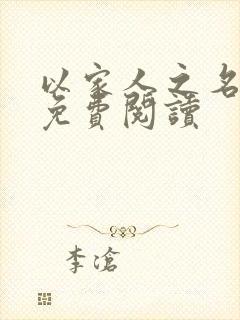 以家人之名
免費閱讀
李滄